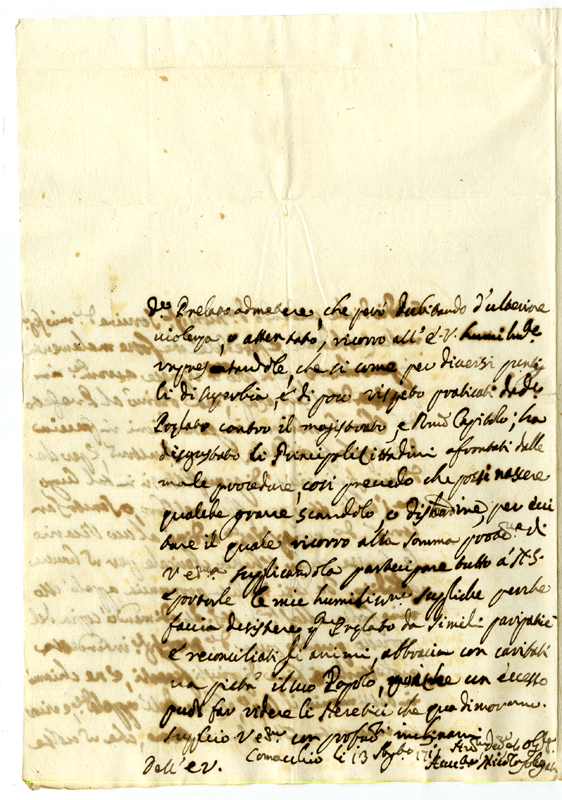 d.º Prelato admettere, che però dubitando d'ulteriore
violenza, o attentato, ricorro all' E. V. humilm.e
rappresentandole, che si come per diversi punti
li di superbia, e di poco rispetto praticati da d.º
Prelato contro il magistrato, e Rmo Capitolo; ha
disgustato li Principali Cittadini afrontati dalle
male procedure, così prevedo che possi nascere
qualche grave scandolo, o per evi
tare il quale ricorro alla somma di
V. E. suplicandola partecipare tutto a S. S.
e portarle le mie humilissime supliche perche
faccia desistere q.to Prelato da simili
e reconciliati gli animi, abbraccia con caritati
va pietà il suo Popolo, mentre un eccesso
può far ridere li Heretici che qua dimorano.
Supplico V. E. con profondi inchinarmi
Dell' E. V.
Comacchio li 13
Nicolò